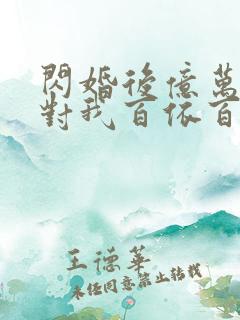 閃婚後億萬
對我百依百
王德華
未經同意禁止轉載